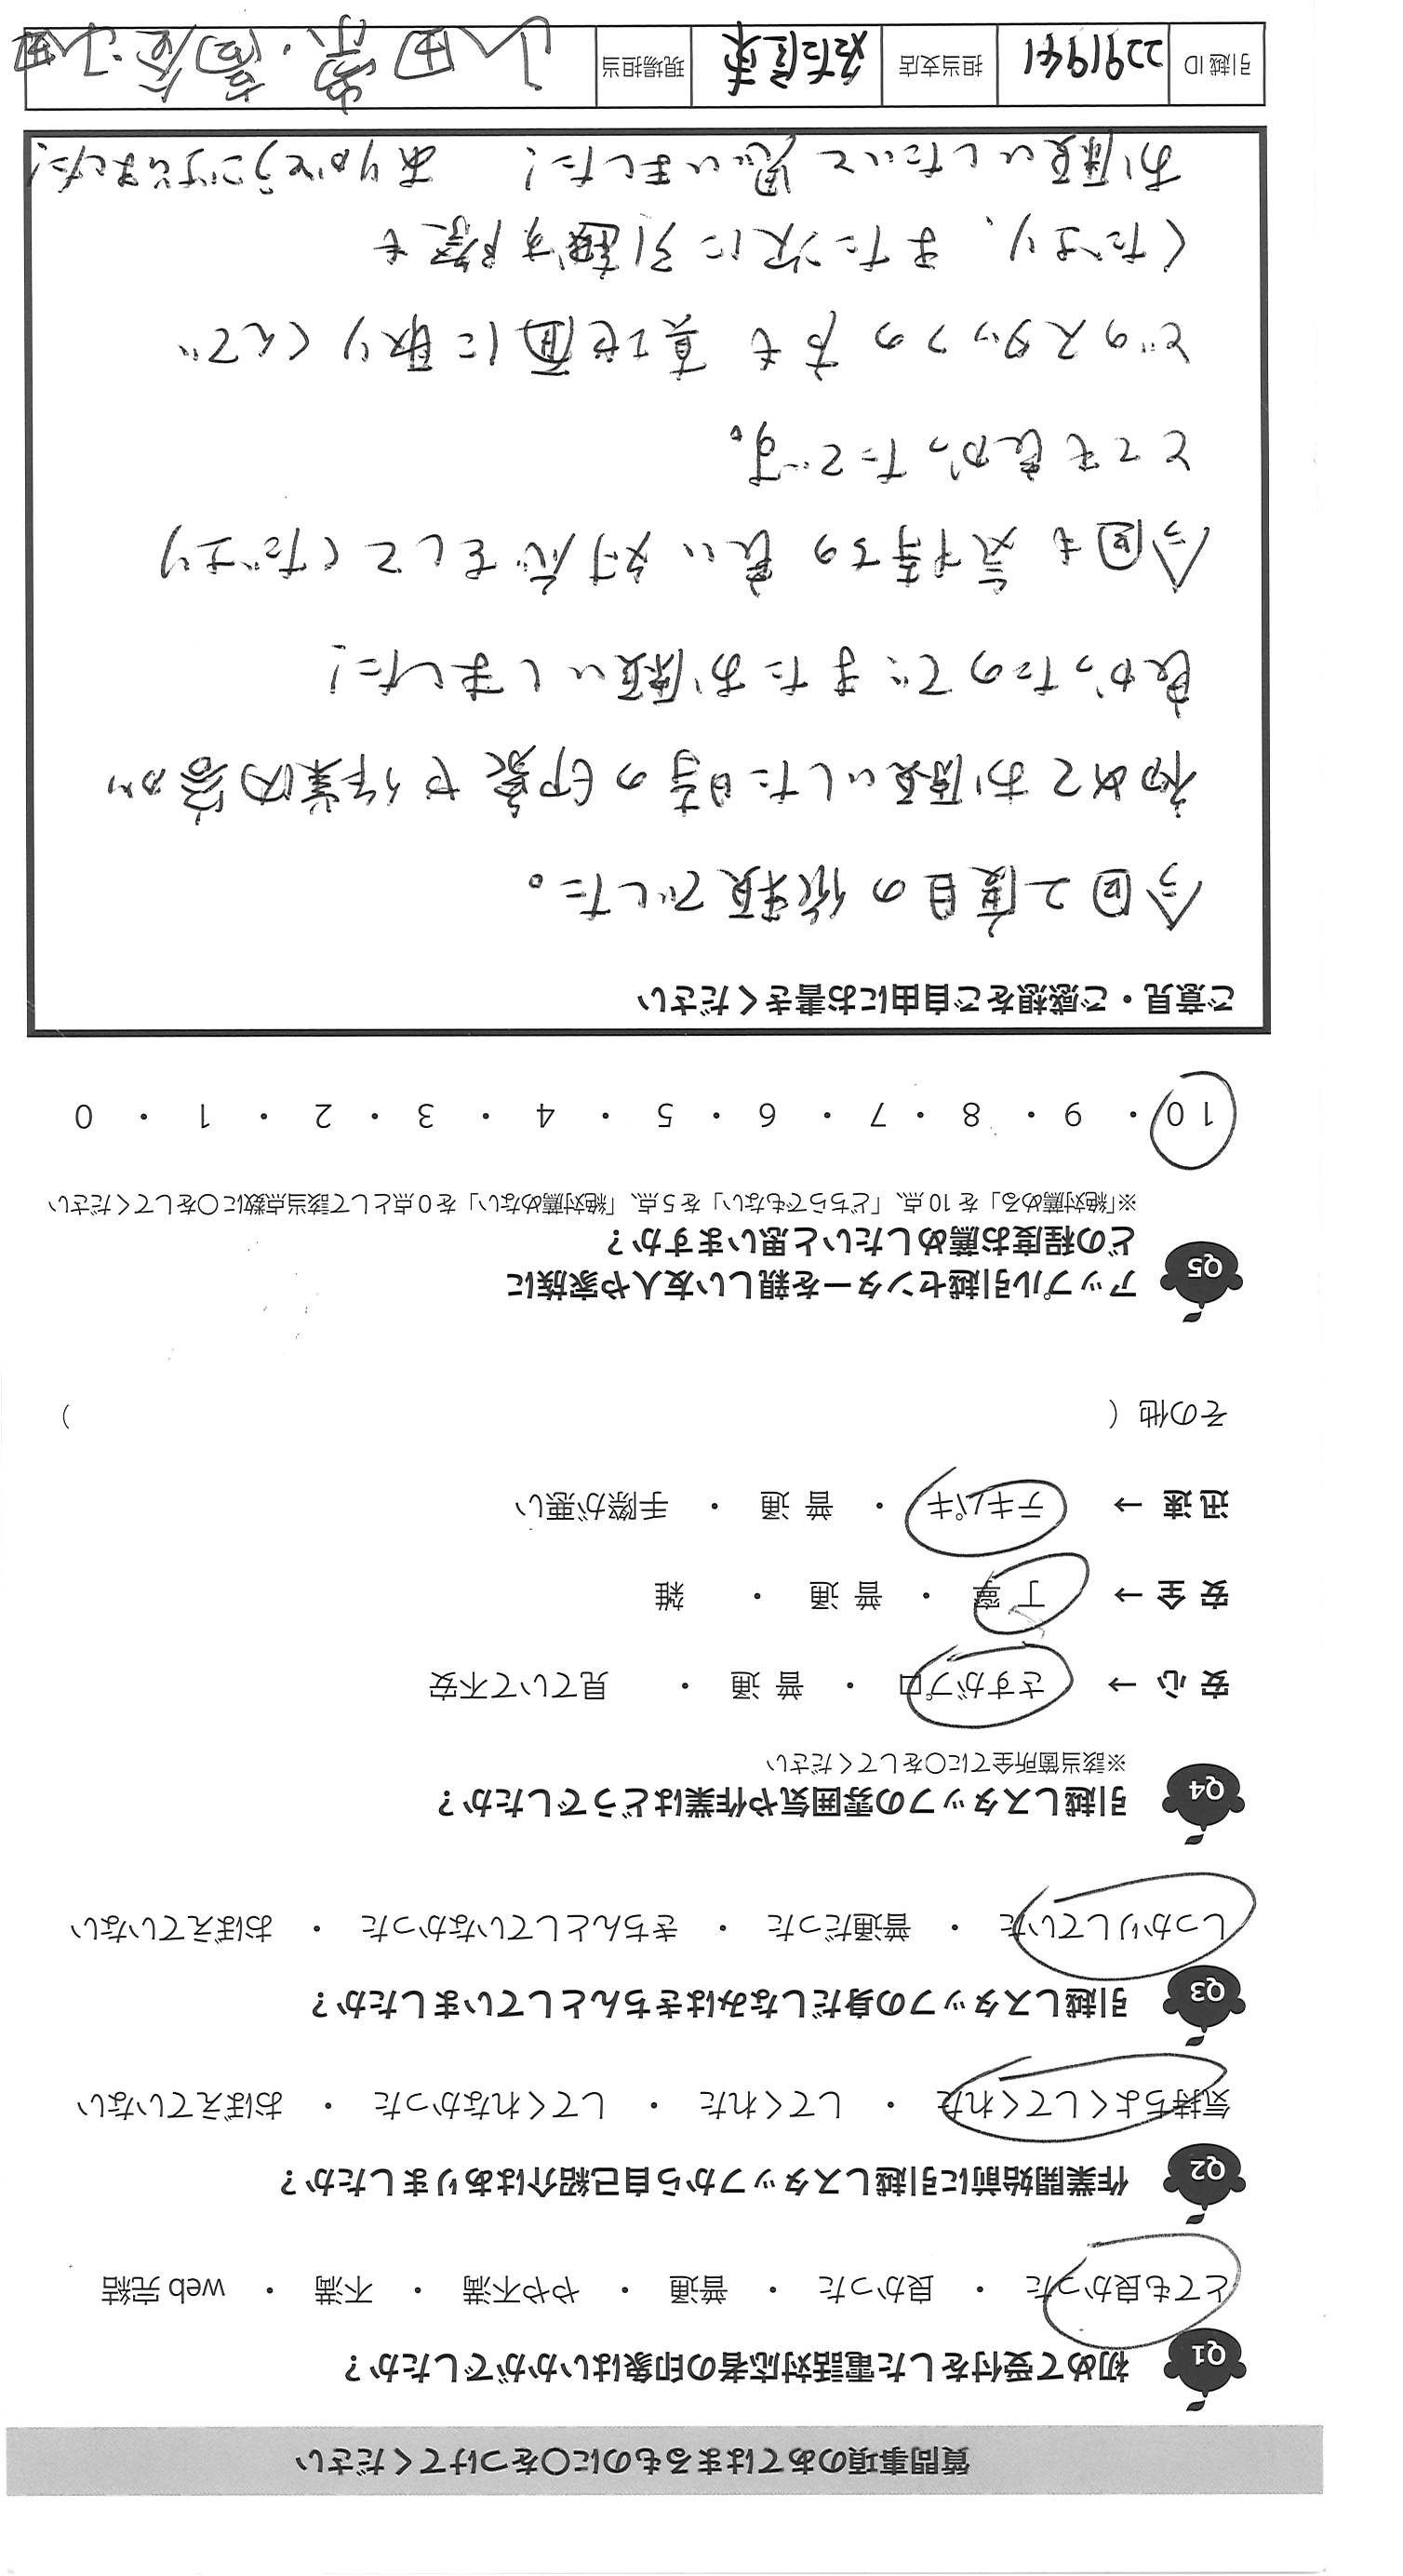 質問事項のあてはまるものに〇をつけてください
Q1 初めて受付をした電話対応者の印象はいかがでしたか？
とても良かった ・ 良かった ・ 普通 ・ やや不満 ・ 不満 ・ web 完結
Q2 作業開始前に引越しスタッフから自己紹介はありましたか？
気持ちよくしてくれた ・ してくれた ・ してくれなかった ・ おぼえていない
Q3 引越しスタッフの身だしなみはきちんとしていましたか？
しっかりしていた ・ 普通だった ・ きちんとしていなかった ・ おぼえていない
Q4 引越しスタッフの雰囲気や作業はどうでしたか？
※該当箇所全てに〇をしてください
安 心 → さすがプロ ・ 普 通 ・ 見ていて不安
安 全 → 丁 寧 ・ 普 通 ・ 雑
迅 速 → テキパキ ・ 普 通 ・ 手際が悪い
その他（ ）
Q5 アップル引越センターを親しい友人や家族に
どの程度お薦めしたいと思いますか？
※「絶対薦める」を 10 点、「どちらでもない」を 5 点、「絶対薦めない」を 0 点として該当点数に〇をしてください
10 ・ 9 ・ 8 ・ 7 ・ 6 ・ 5 ・ 4 ・ 3 ・ 2 ・ 1 ・ 0
ご意見・ご感想をご自由にお書きください
今回2度目の依頼でした。
初めてお願いした時の印象や作業内容が
良かったのでまたお願いしました！
今回も気持ちの良い対応をしてくださり
とても良かったです。
どのスタッフの方も真面目に取りくんで
くださり、また次に引越す際も
お願いしたいと思いました！ ありがとうございました！
引越 ID 2291941 担当支店 現場担当 山田